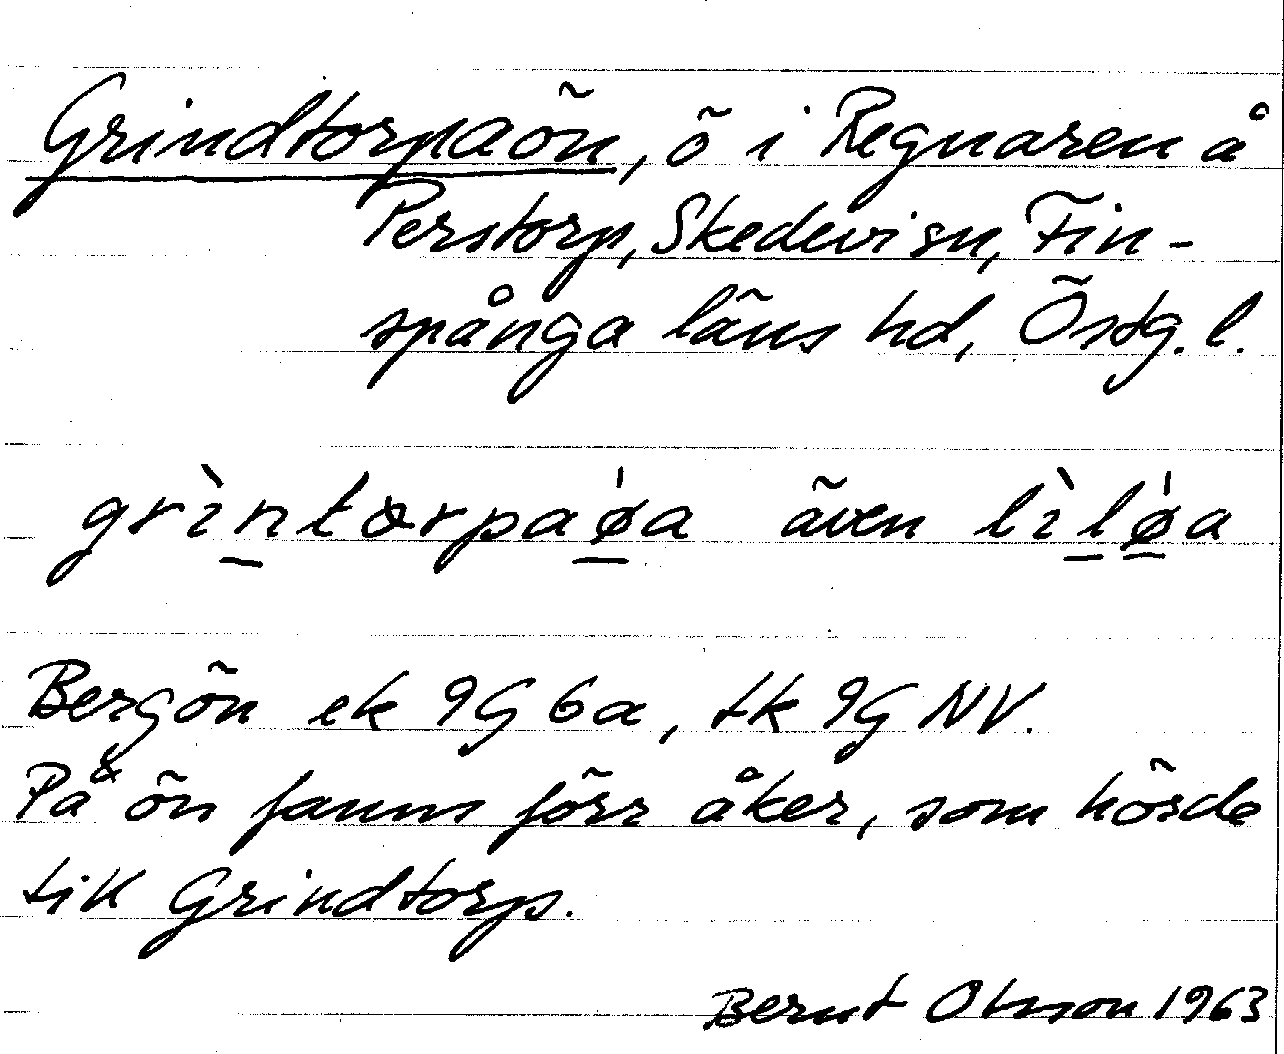 Grindtorpaön, ö i Regnaren å
Perstorp, Skedevi sn, Fin-
spånga läns hd, Östg. l.
grìntorpaǿa även lìlǿa
Bergön ek 9G 6a, tk 9G NV.
På ön fanns förr åker, som hörde
till Grindtorp.
Bernt Olsson 1963